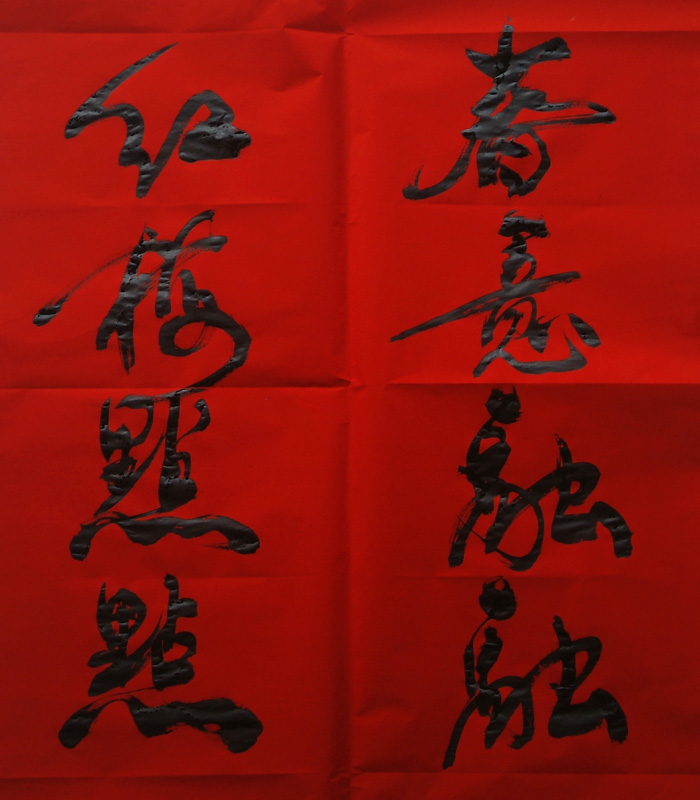 春意融融
红梅點點